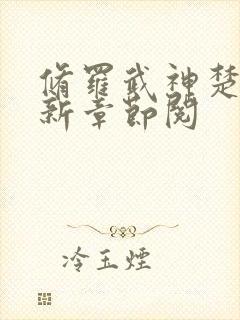 脩羅武神楚
新章節閱
冷玉煙